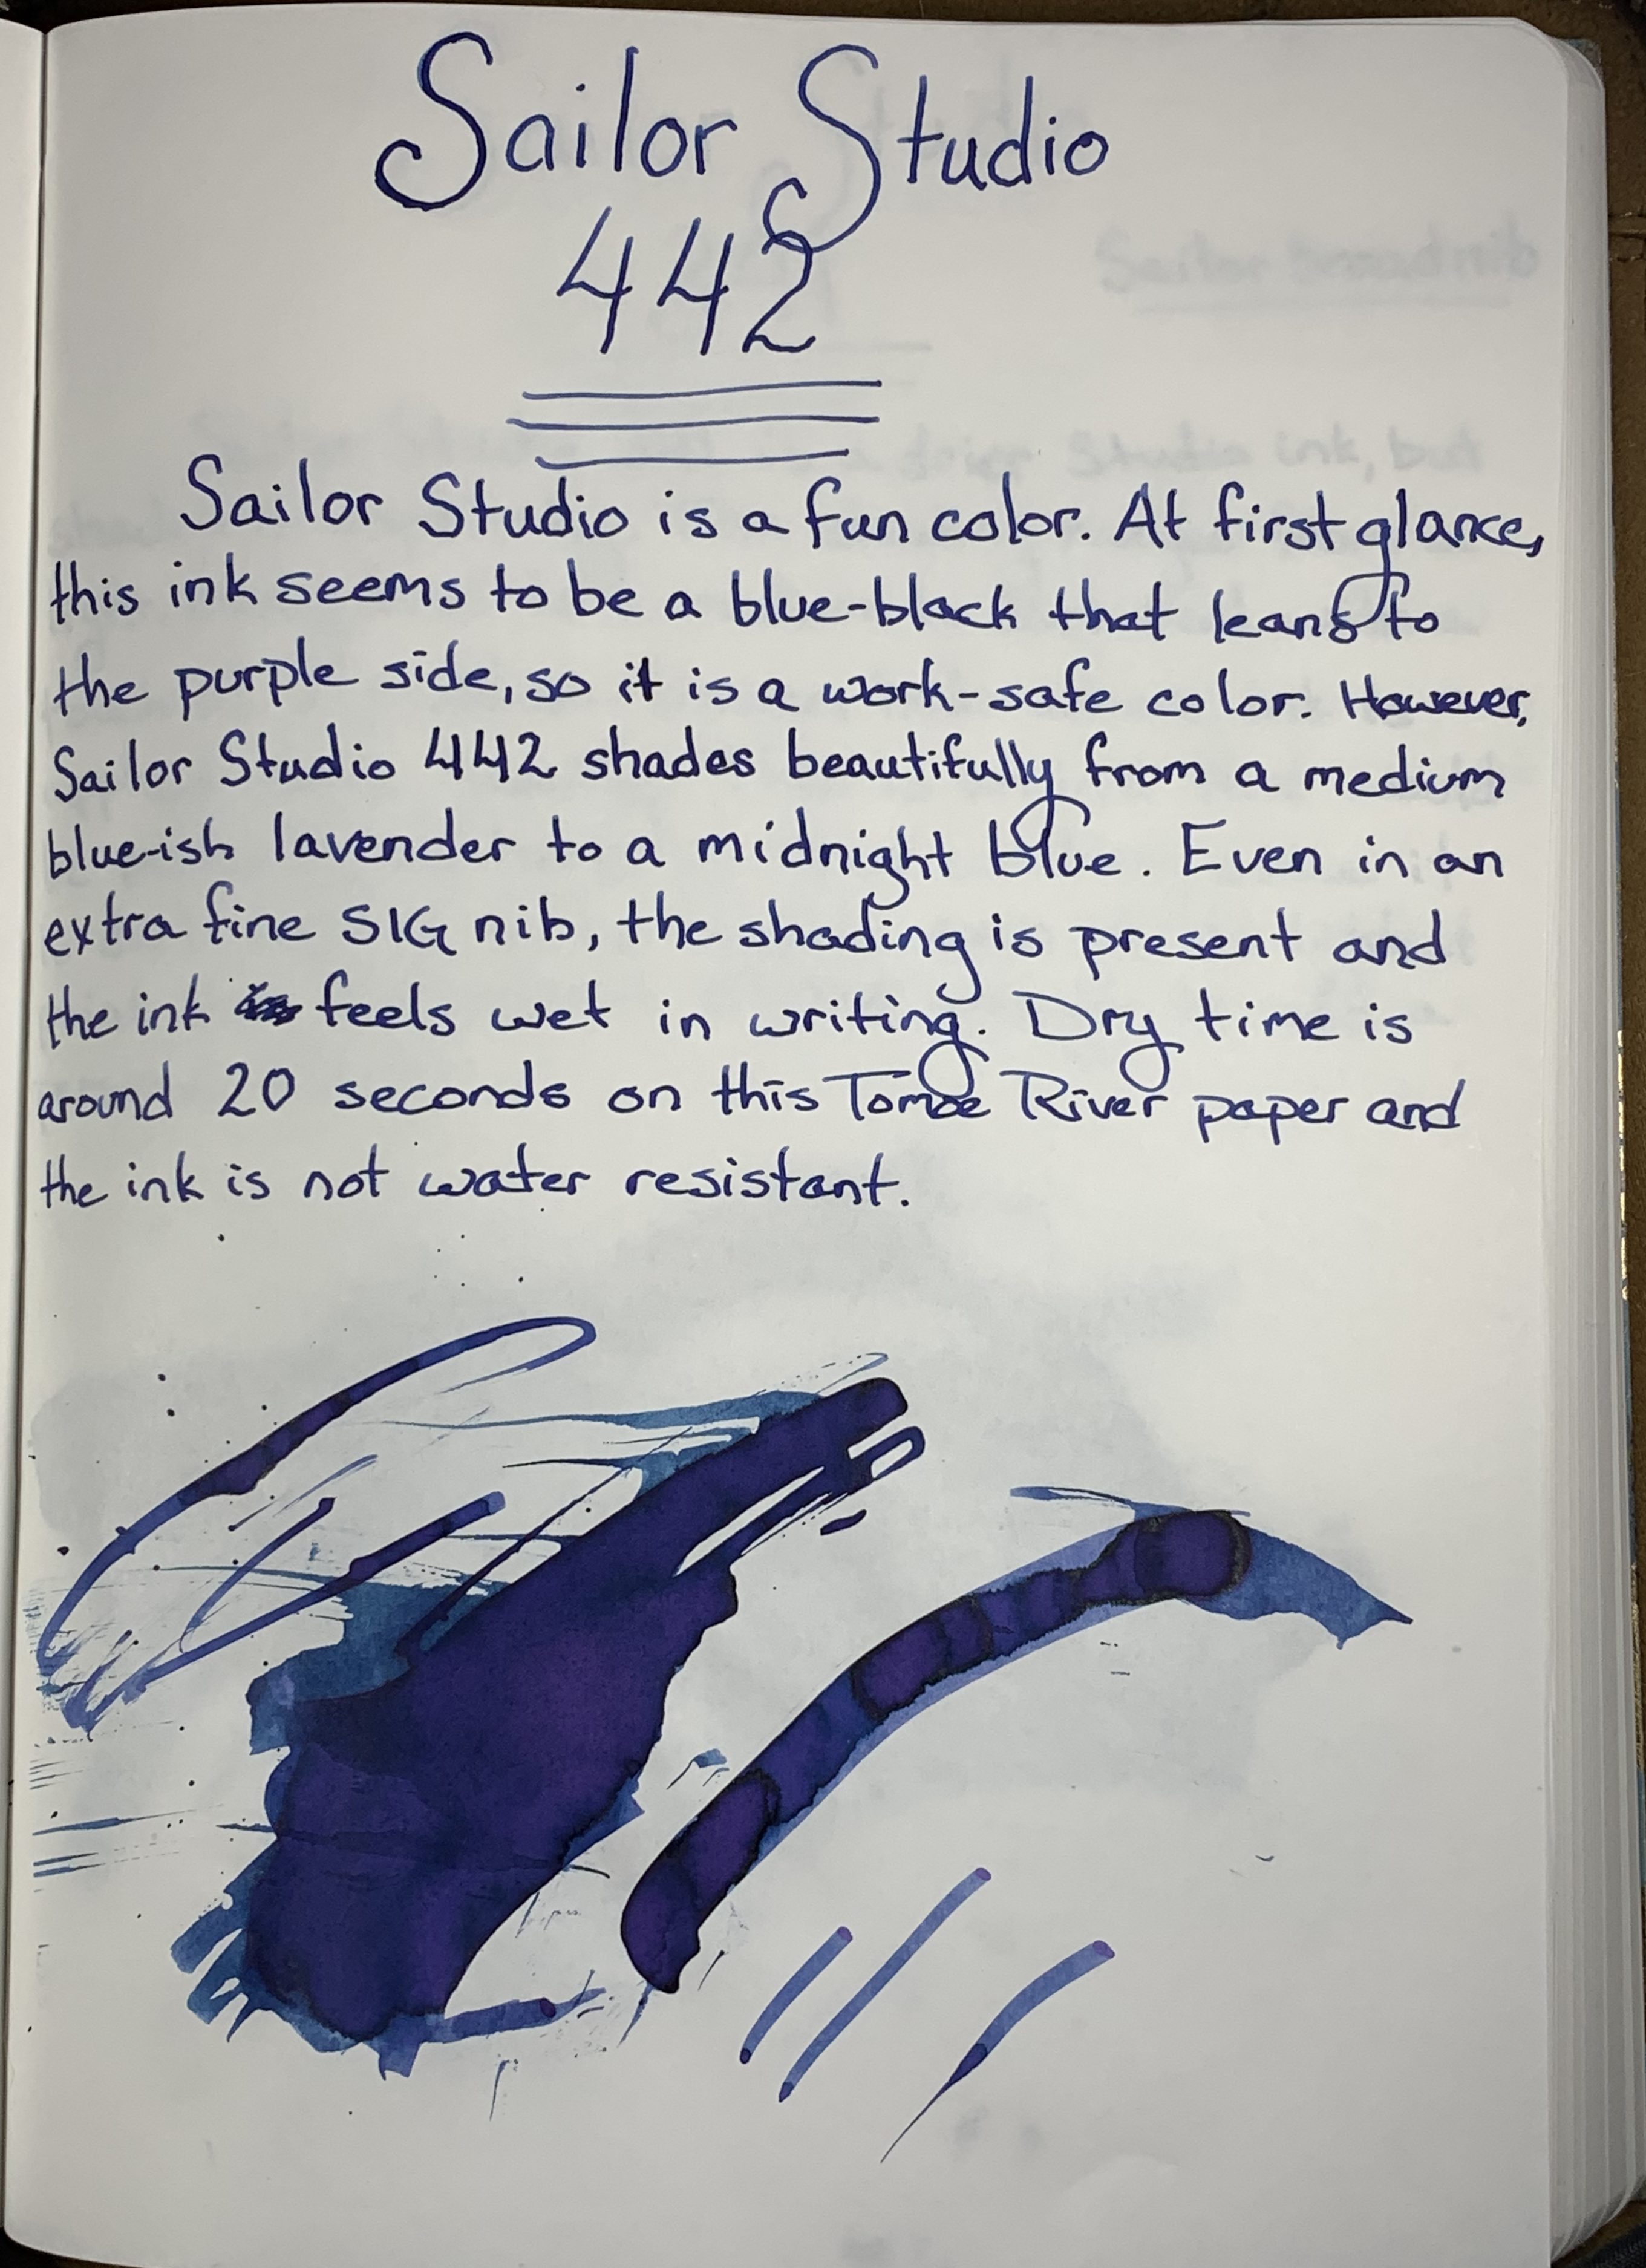 Sailor Studio
442
Sailor broad nib
drier Studio ink, but
Sailor Studio is a fun color. At first glance,
this ink seems to be a blue-black that leans to
the purple side, so it is a work-safe color. However,
Sailor Studio 442 shades beautifully from a medium
blue-ish lavender to a midnight blue. Even in an
extra fine SIG nib, the shading is present and
the ink feels wet in writing. Dry time is
around 20 seconds on this Tomoe River paper and
the ink is not water resistant.